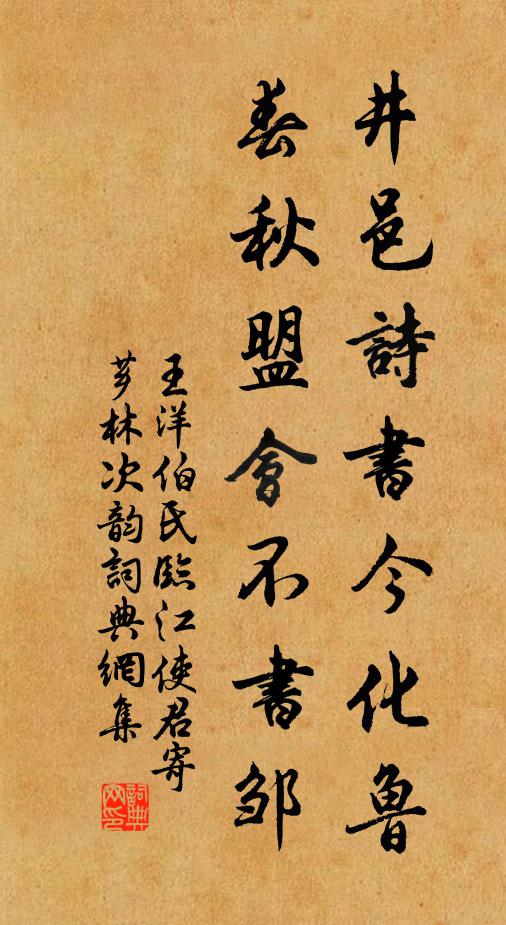 井邑詩書今化魯
春秋盟會不書邹
王洋伯氏臨江使君寄
芗林次韵詞典網集
詞典网印